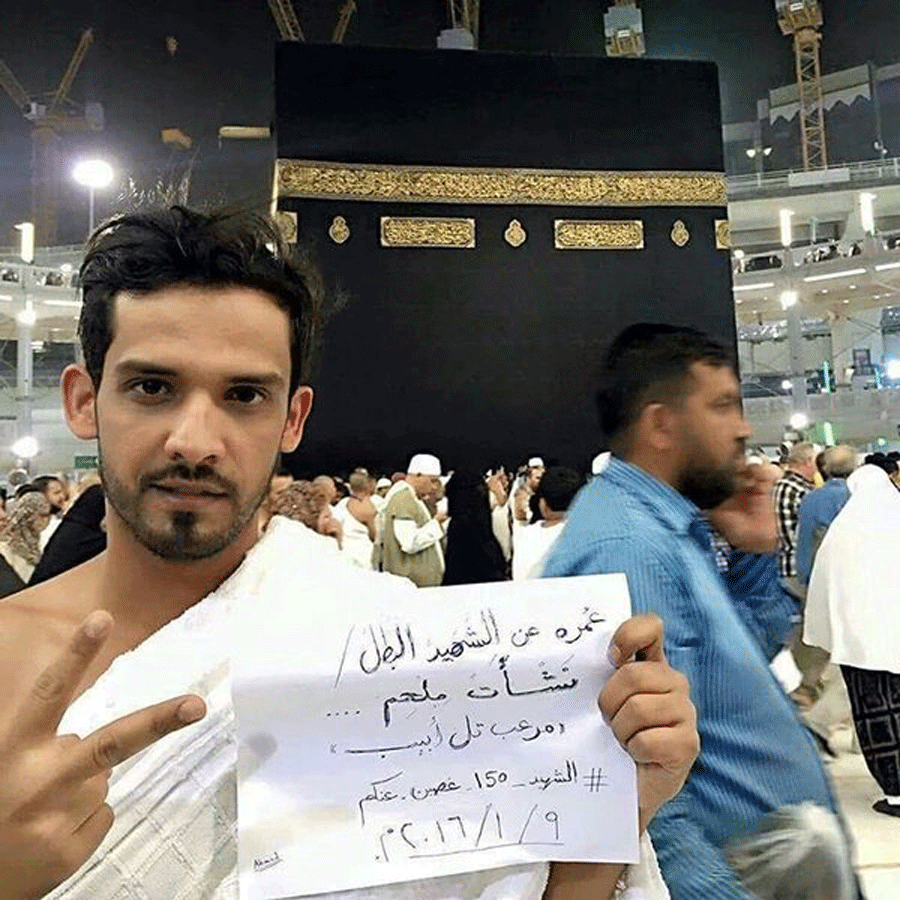 عُمره عن الشَّهيد البطل /
نَشْأَت مِلحِم ....
«مرعب تل أبيب»
# الشهيد_150_غصبن_عنكم
٢٠١٦/١/٩م.
Ahmed